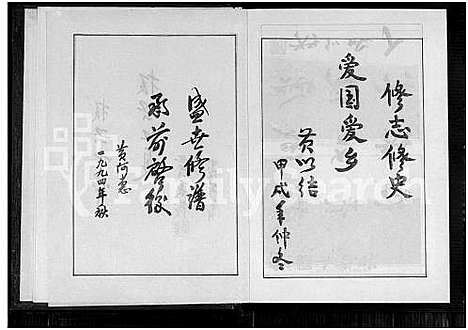 修志修史
爱国爱乡
黄以结
甲戌年仲冬
盛世修谱
承前启后
黄河忠
一九九四年秋
FamilySearch